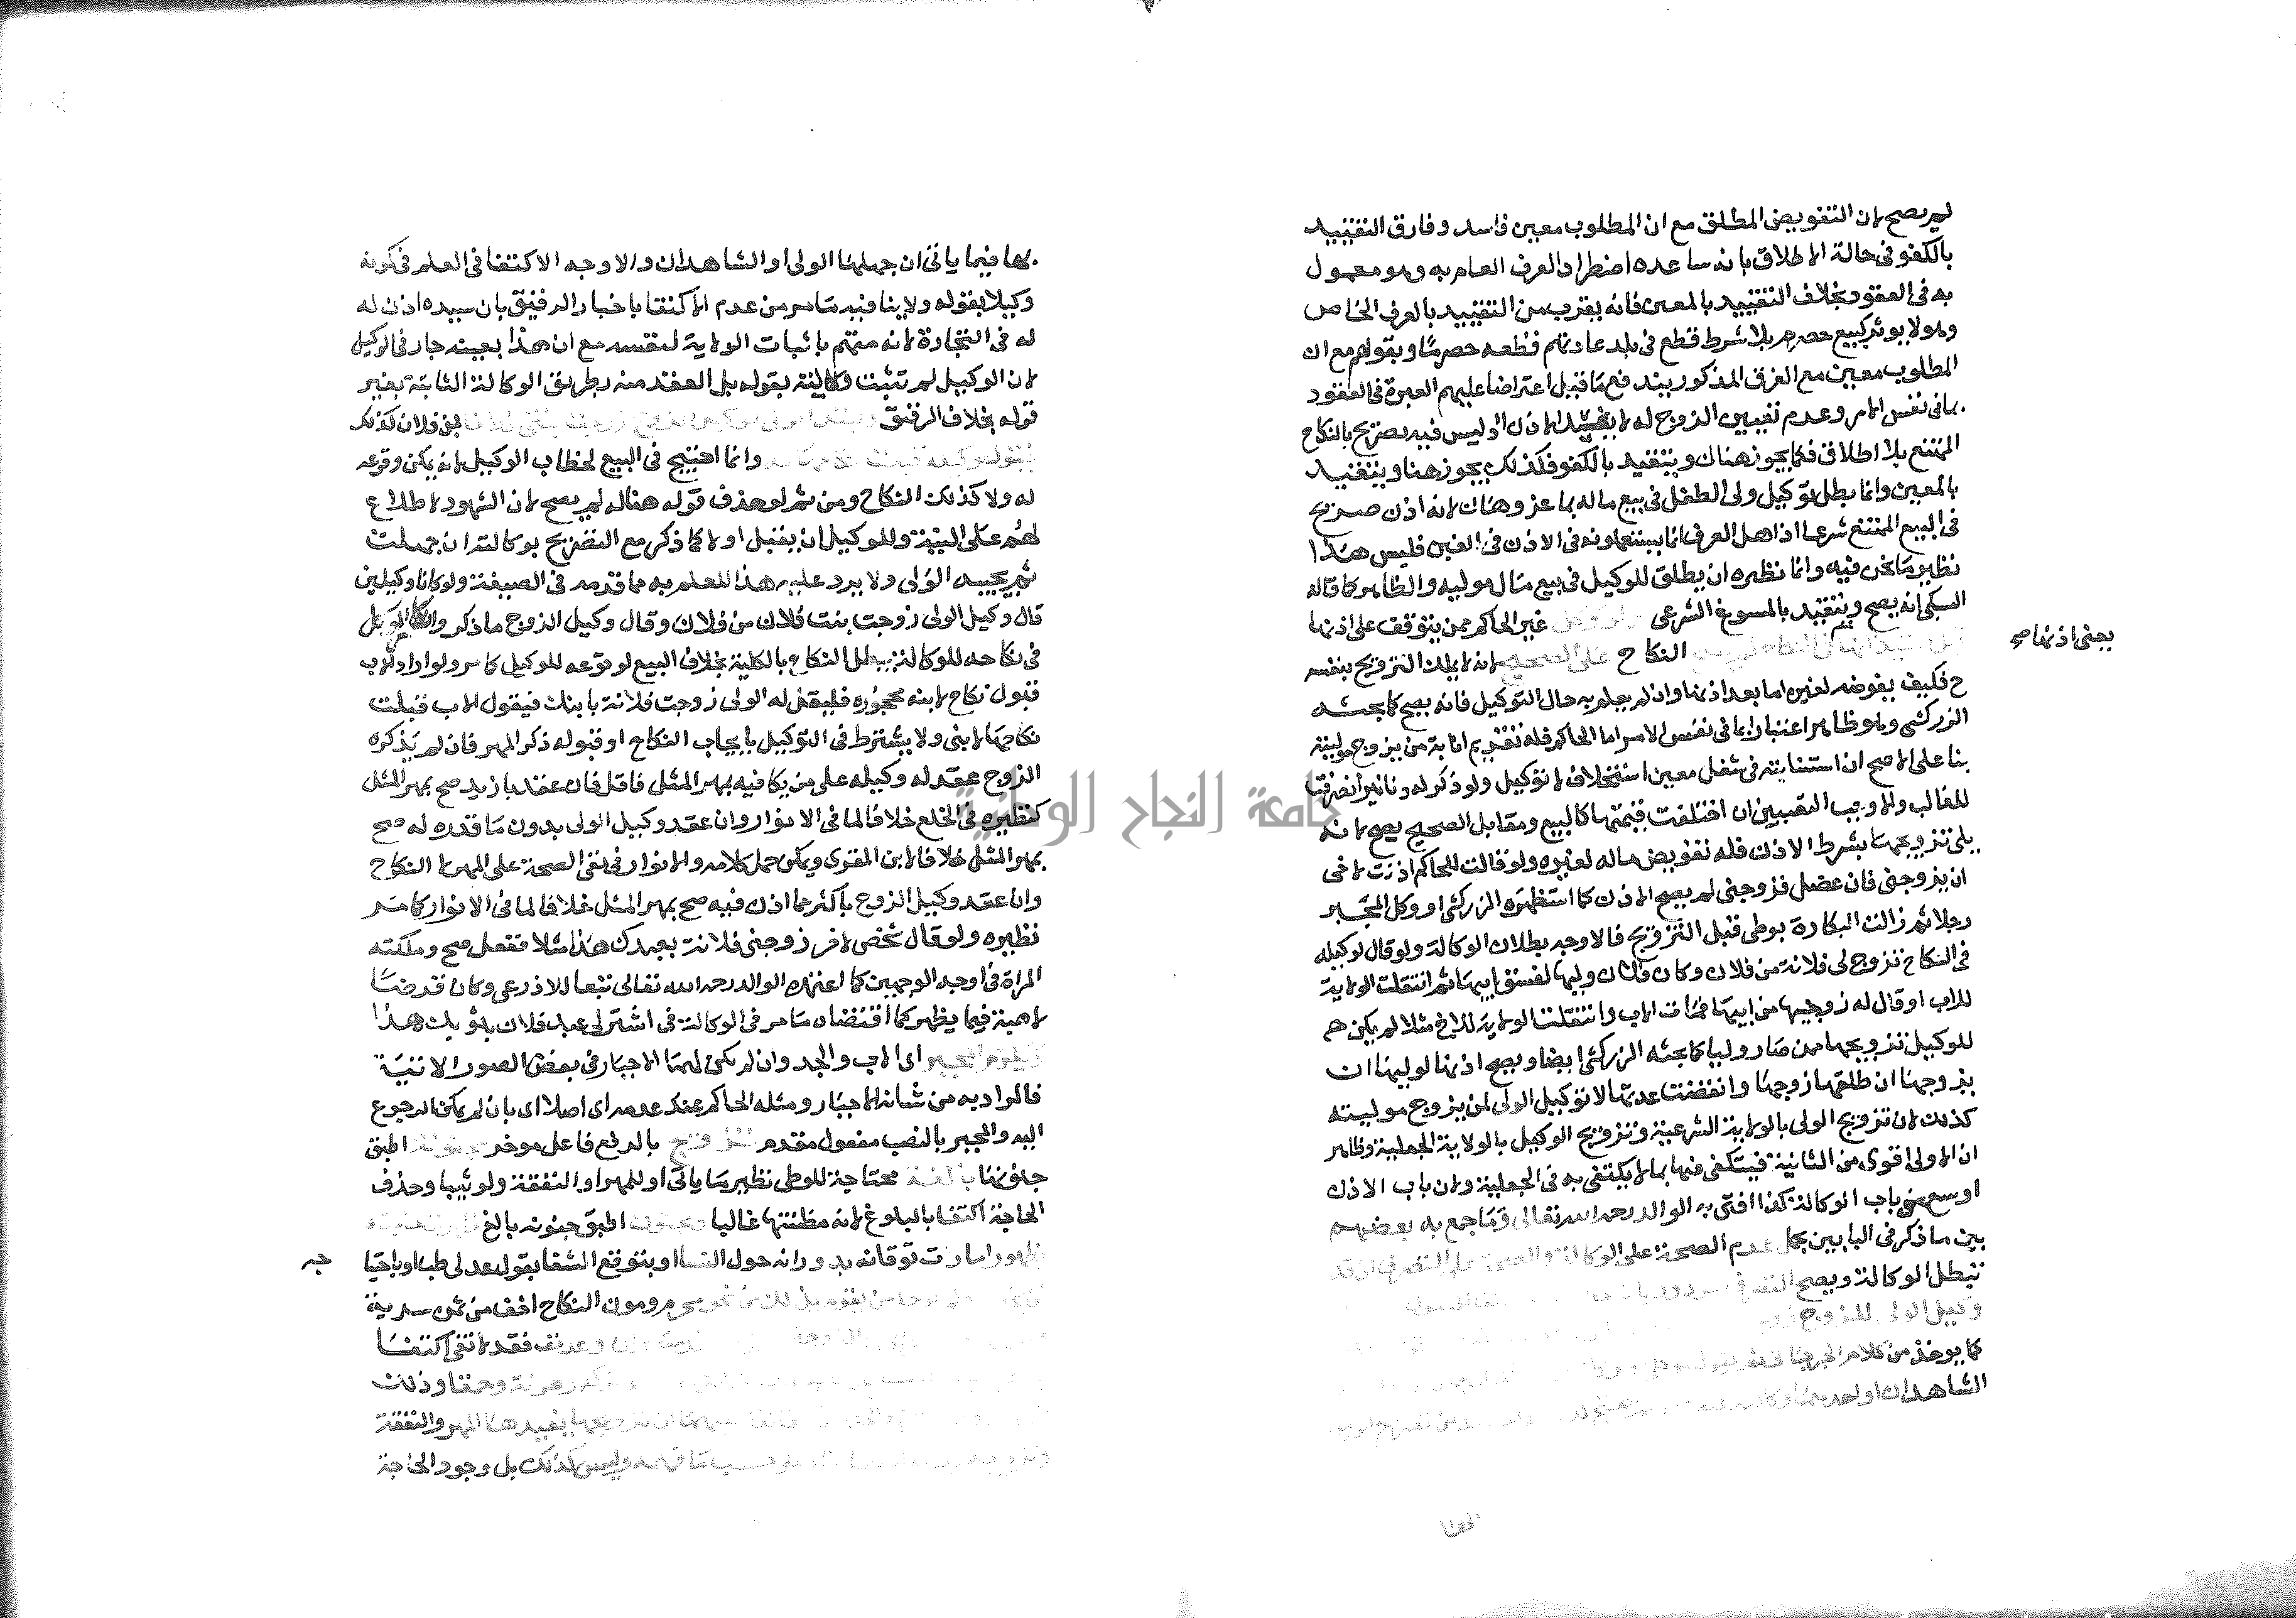 لم يصح لان التفويض المطلق مع ان المطلوب معين فاسد وفارق التقييد
بالكفو في حالة الاطلاق بانه ساعده اضطراد العرف العام به وهو معمول
به في العقود بخلاف التقييد بالمعين فانه يقرب من التقييد بالعرف الخاص
وهولا يوثر كبيع حصرم بلا شرط قطع في بلد عادتهم قطعه حصرما وبقولهم مع ان
المطلوب معين مع الفرق المذكور يندفع ما قيل اعتراضا عليهم العبرة في العقود
بما في نفس الامر وعدم تعيين الزوج له لا يفسد الاذن اذ ليس فيه تصريح بالنكاح
الممتنع بلا اطلاق فكما يجوز هناك ويتقيد بالكفو فكذلك يجوز هنا ويتقيد
بالمعين وانما بطل توكيل ولي الطفل في بيع ماله بما عز وهان لانه اذن صريح
في البيع الممتنع شرعا اذ اهل العرف انما يستعملونه في الاذن في الغبن فليس هذا
نظير ما نحن فيه وانما نظيره ان يطلق للوكيل في بيع مال موليه والظاهر كما قاله
السبكي انه يصح ويتقيد بالمسوغ الشرعي غير الحاكم ممن يتوقف على اذنها
يعني اذنها صح
النكاح على الصحيح لانه لا يملك التزويج بنفسه
ح فكيف يفوضه لغيره اما بعد اذنها وان لم يعلم به حال التوكيل فانه يصح كما بحثه
الزركشي وهو ظاهر اعتبارا بما في نفس الامر اما الحاكم فله تقديم انابة من يزوج موليته
بنا على الاصح ان استنابته في شغل معين استخلاف لا توكيل ولو ذكر له دنانير انصرفت
للغالب والا وجب التعيين ان اختلفت قيمتها كالبيع ومقابل الصحيح يصح لانه
يلي تزويجها بشرط الاذن فله تفويض ماله لغيره ولو قالت للحاكم اذنت لاخي
ان يزوجني فان عضل فزوجني لم يصح الاذن كما استظهره الزركشي او وكل المجبر
رجلا ثم زالت البكارة بوطي قبل التزويج فالاوجه بطلان الوكالة ولو قال لوكيله
في النكاح تزوج لي فلانة من فلان وكان فلان وليها لفسق ابيها ثم انتقلت الولاية
للاب او قال له زوجنيها من ابيها فمات الاب وانتقلت الولاية للاخ مثلا لم يكن هم
للوكيل تزويجها ممن صار وليا كما بحثه الزركشي ايضا ويصح اذنها لوليها ان
يزوجها ان طلقها زوجها وانقضت عدتها لا توكيل الولي لمن يزوج موليته
كذلك لان تزويج الولي بالولاية الشرعية وتزويج الوكيل بالولاية الجعلية وظاهر
ان الاولى اقوى من الثانية فيكتفى فيها بما لا يكتفى به في الجعلية ولان باب الاذن
اوسع من باب الوكالة كذا افتى به الوالد رحمه الله تعالى وما جمع به بعضهم
بين ما ذكر في البابين بحمل عدم الصحة على الوكالة والصحة على التصرف اذ قد
تبطل الوكالة ويصح التصرف
وكيل الولي للزوج
كما يوخذ من كلام الجرجاني
الشاهدان او احدهما
الحقنا
بها فيما ياتي ان جهلها الولي او الشاهدان والاوجه الاكتفا في العلم في كونه
وكيلا بقوله ولا ينافيه ما مر من عدم الاكتفا باخبار الرقيق بان سيده اذن له
له في التجارة لانه متهم باثبات الولاية لنفسه مع ان هذا بعينه جار في الوكيل
لان الوكيل لم تثبت وكالته بقوله بل العقد منه بطريق الوكالة الثابتة بغير
قوله بخلاف الرقيق بنتي فلان كذلك
وانما احتيج في البيع لخطاب الوكيل لانه يمكن وقوعه
له ولا كذلك النكاح ومن ثم لو حذف قوله هنا له لم يصح لان الشهود لا اطلاع
لهم على النية وللوكيل ان يقبل اولا كما ذكر مع التصريح بوكالته ان جهلت
ثم يجيبه الولي ولا يرد عليه هذا للعلم به مما قدمه في الصيغة ولو كانا وكيلين
قال وكيل الولي زوجت بنت فلان من فلان وقال وكيل الزوج ما ذكر وانكار الموكل
في نكاحه للوكالة يبطل النكاح بالكلية بخلاف البيع لوقوعه للوكيل كما مر ولو اراد الاب
قبول نكاح لابنه محجوره فليقل له الولي زوجت فلانة بابنك فيقول الاب قبلت
نكاحها لابني ولا يشترط في التوكيل بايجاب النكاح او قبوله ذكر المهر فان لم يذكره
الزوج عقد له وكيله على من يكافيه بمهر المثل فاقل فان عقد بازيد صح بمهر المثل
كنظيره في الخلع خلافا لما في الانوار وان عقد وكيل الولي بدون ما قدره له صح
بمهر المثل خلافا لابن المقري ويمكن حمل كلامه والانوار في نفي الصحة على المهر لا النكاح
وان عقد وكيل الزوج باكثر مما اذن فيه صح بمهر المثل خلافا لما في الانوار كما مر
نظيره ولو قال شخص لاخر زوجني فلانة بعبدك هذا مثلا ففعل صح وملكته
المراة في اوجه الوجهين كما اعتمده الوالد رحمه الله تعالى تبعا للاذرعي وكان قرضا
لا هبة فيما يظهر كما اقتضاه ما مر في الوكالة في اشتر لي عبد فلان بثوبك هذا
المجبر اي الاب والجد وان لم يكن لهما الاجبار في بعض الصور الاتية
فالمراد به من شانه الاجبار ومثله الحاكم عند عدمه اي اصلا اي بان لم يمكن الرجوع
اليه والمجبر بالنصب مفعول مقدم تزويج بالرفع فاعل موخر مجنونة اطبق
جنونها بالغة محتاجة للوطي نظير ما ياتي او للمهر او النفقة ولو ثيبا وحذف
الحاجة اكتفا بالبلوغ لانه مظنتها غالبا ومجنون اطبق جنونه بالغ
ظهور امارات توقانه بدورانه حول النسا او بتوقع الشفا بقول عدلي طب او باحتيا
جه
ومون النكاح اخف من ثمن سرية
فقد لا تفي اكتفا
وحمقا وذلك
تزويجها يفيدها المهر والنفقة
وليس كذلك بل وجود الحاجة
جامعة النجاح الوطنية